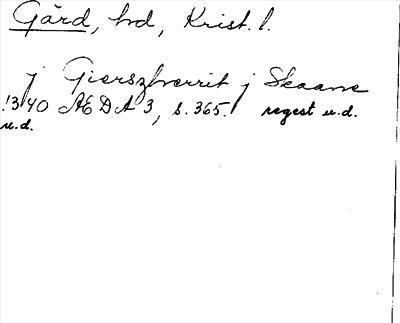 Gärd, hd, Krist. l.
j Gierszherrit j Skaane
1340 ÆDA 3, s. 365. regest u.d.
u.d.